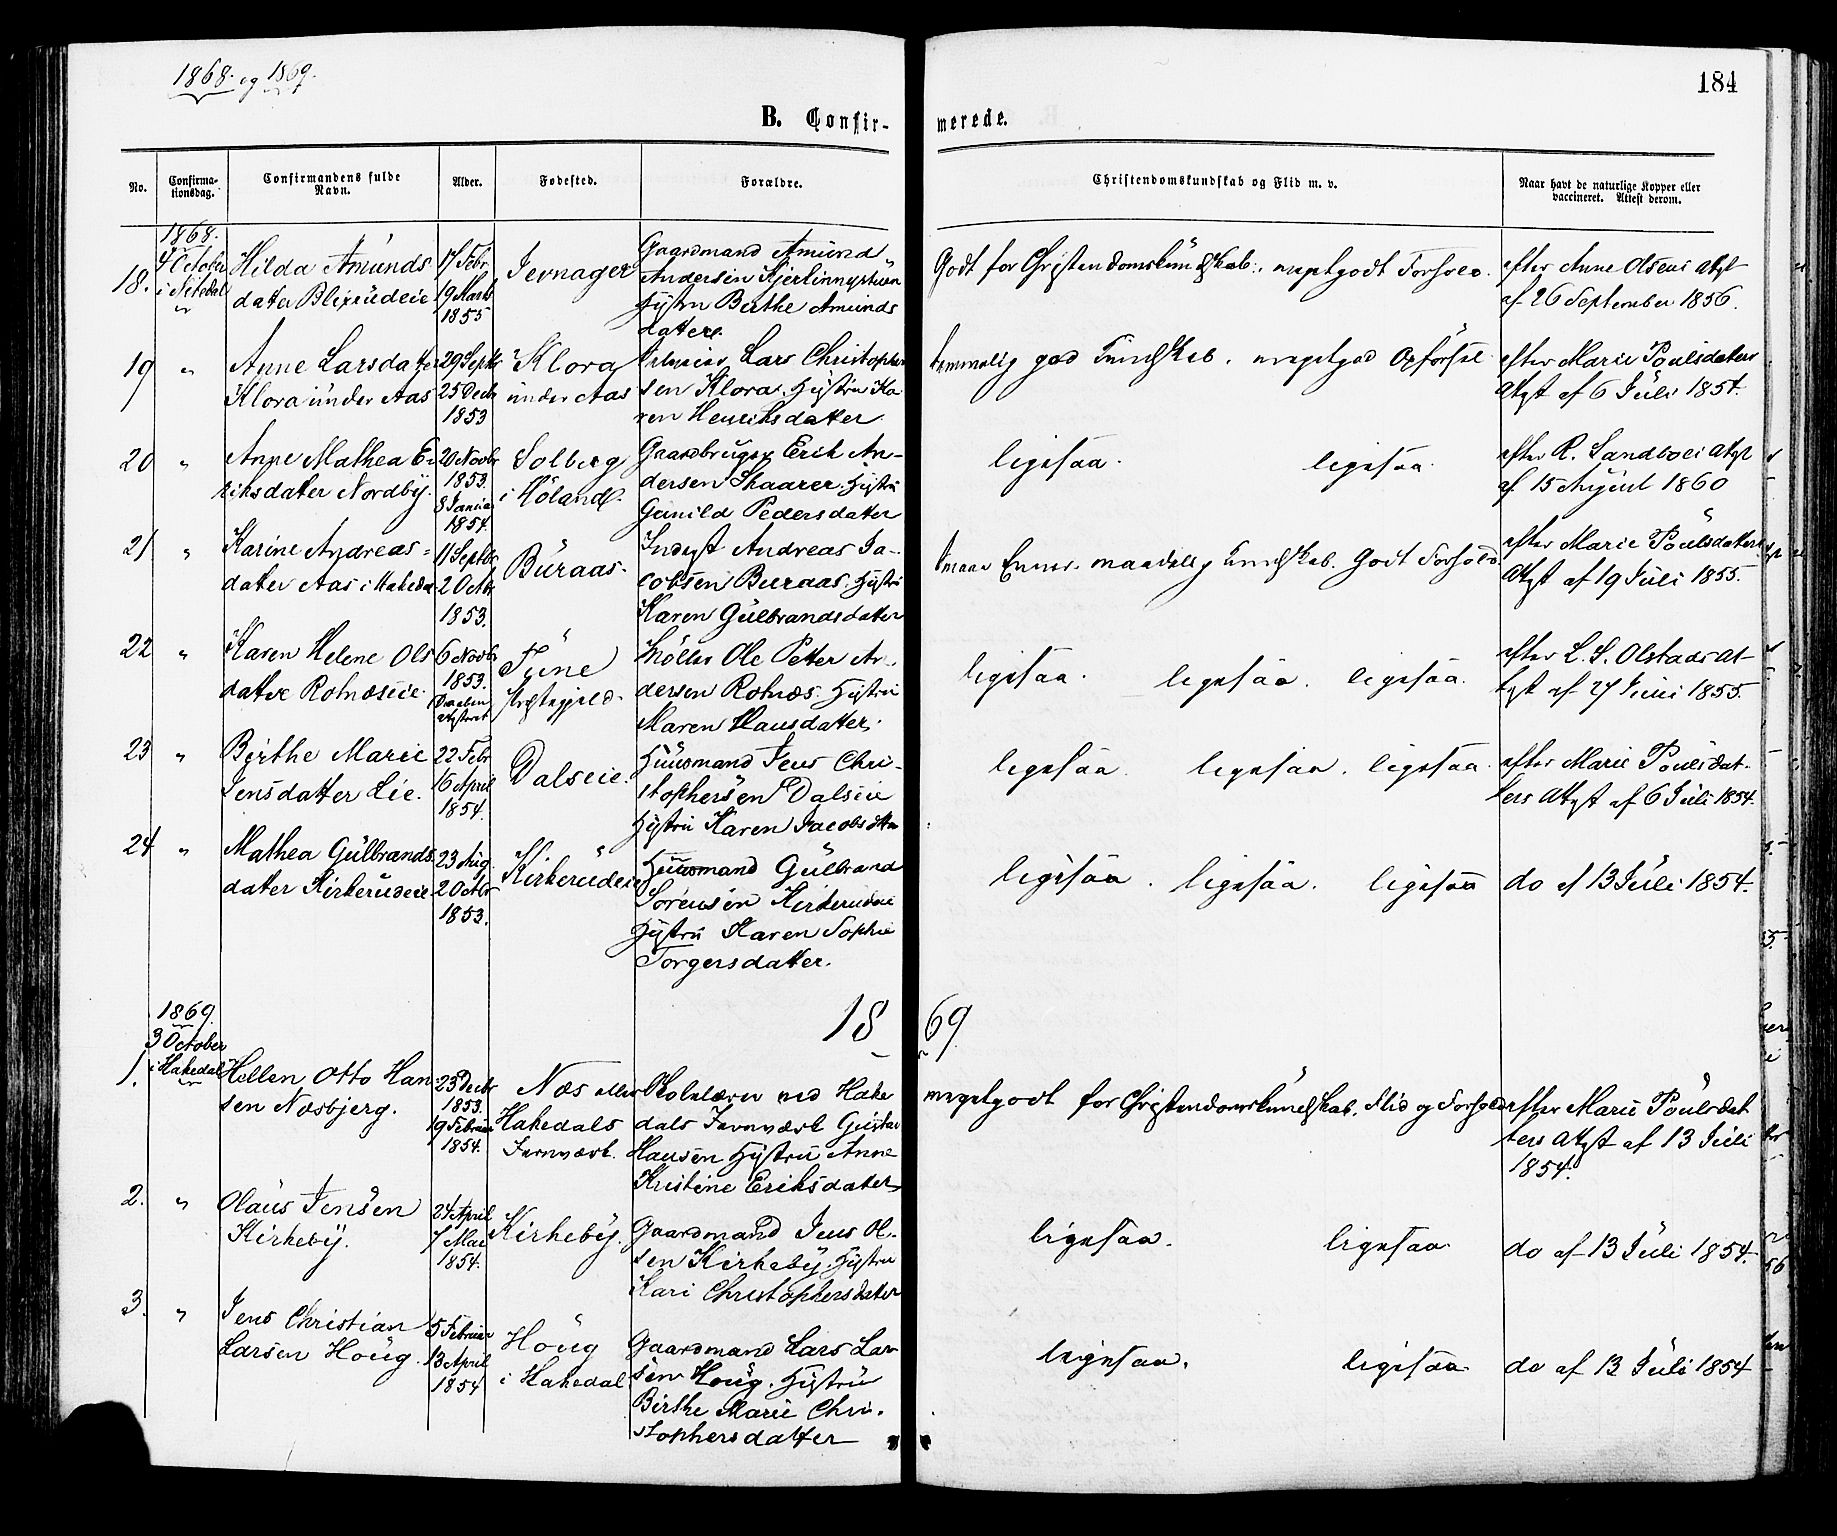 1868. og 1869.
184
B. Confir-
merede.
No.
Confirma-
tionsdag.
Confirmandens fulde
Navn.
Alder.
Fødested.
Forældre.
Christendomskundskab og Flid m. v.
Naar havt de naturlige Kopper eller
vaccineret. Attest derom.
18.
1868.
4 October
i Nitedal
Hilda Amunds
dater Blixrudeie
17 Febr
19 Marts
1855
Jevnager
Gaardmand Amund
Andersen
Hustru Berthe Amunds
datter.
Godt for Christendomskundskab. megetgodt Forhold.
efter Anne Olsens Attest
af 26 September 1856.
19
"
Anne Larsdatter
Klora under Aas
29 Septb
25 Decb
1853
Klora
under Aas
Lars Christopher
sen Klora. Hustru Ka
ren Henriksdatter
temmelig god Kundskab. megetgod Opførsel
efter Marie Poulsdaters
Attest af 6 Juli 1854.
20
"
Anne Mathea E
riksdater Nordby.
20 Novbr
1853.
8 Januar
1854.
Solberg
i Høland.
Gaardbruger Erik An-
dersen Skaarer. Hustru
Gunild Pedersdatter
ligesaa. ligesaa.
efter R. Sandboei Attest
af 15 August 1860
21
"
Karine Andreas=
dater Aas i Hakedal
11 Septbr
2 Octbr
1853.
Buraas.
Inderst Andreas Ja-
cobsen Buraas. Hustru
Karen Gulbrandsdatter
maadelig Kundskab. Godt Forhold
efter Marie Poulsdaters
Attest af 19 Juli 1855.
22
"
Karen Helene Ols
datter Rotnæseie
6 Novbr
1853.
Daaben
attesteret
Præstegjeld.
Møller Ole Petter An-
dersen Rotnæs. Hustru
Maren Hansdatter.
ligesaa. ligesaa. ligesaa.
efter L. S. Olstads At-
test af 27 Juni 1855.
23
"
Berthe Marie
Jensdatter Lie.
22 Febr
16 April
1854.
Dalseie.
Huusmand Jens Chri-
stophersen Dalseie
Hustru Karen Jacobsdtter
ligesaa. ligesaa. ligesaa.
efter Marie Poulsdat-
ters Attest af 6 Juli 1854.
24
"
Mathea Gulbrands
dater Kirkerudeie
23 Aug.
2 Octbr
1853.
Kirkerudeie
Huusmand Gulbrand
Sørensen Kirkerudeie
Hustru Karen Sophie
Torgersdatter.
ligesaa. ligesaa. ligesaa
do af 13 Juli 1854.
1869
1.
1869.
3 October
i Hakedal
Hellen Otto Han-
sen Næsbjerg.
23 Decbr
1853.
19 Februar
1854.
Næs eller
Hakedals
Jernværk.
Skolelærer ved Hake
dals Jernværk Gustav
Hansen Hustru Anne
Kristine Eriksdater
megetgodt for Christendomskundskab, Flid og Forhold
efter Marie Poulsdat
ters Attest af 13 Juli
1854.
2.
"
Olaus Jensen
Kirkeby.
24 April
7 Mai
1854.
Kirkeby.
Gaardmand Jens Ol-
sen Kirkeby. Hustru
Kari Christophersdater
ligesaa. ligesaa.
do af 13 Juli 1854.
3.
"
Jens Christian
Larsen Houg.
5 Februar
13 April
1854
Houg
i Hakedal
Gaardmand Lars Lar
sen Houg. Hustru
Birthe Marie Chri-
stophersdatter
ligesaa. ligesaa.
do af 13 Juli 1854